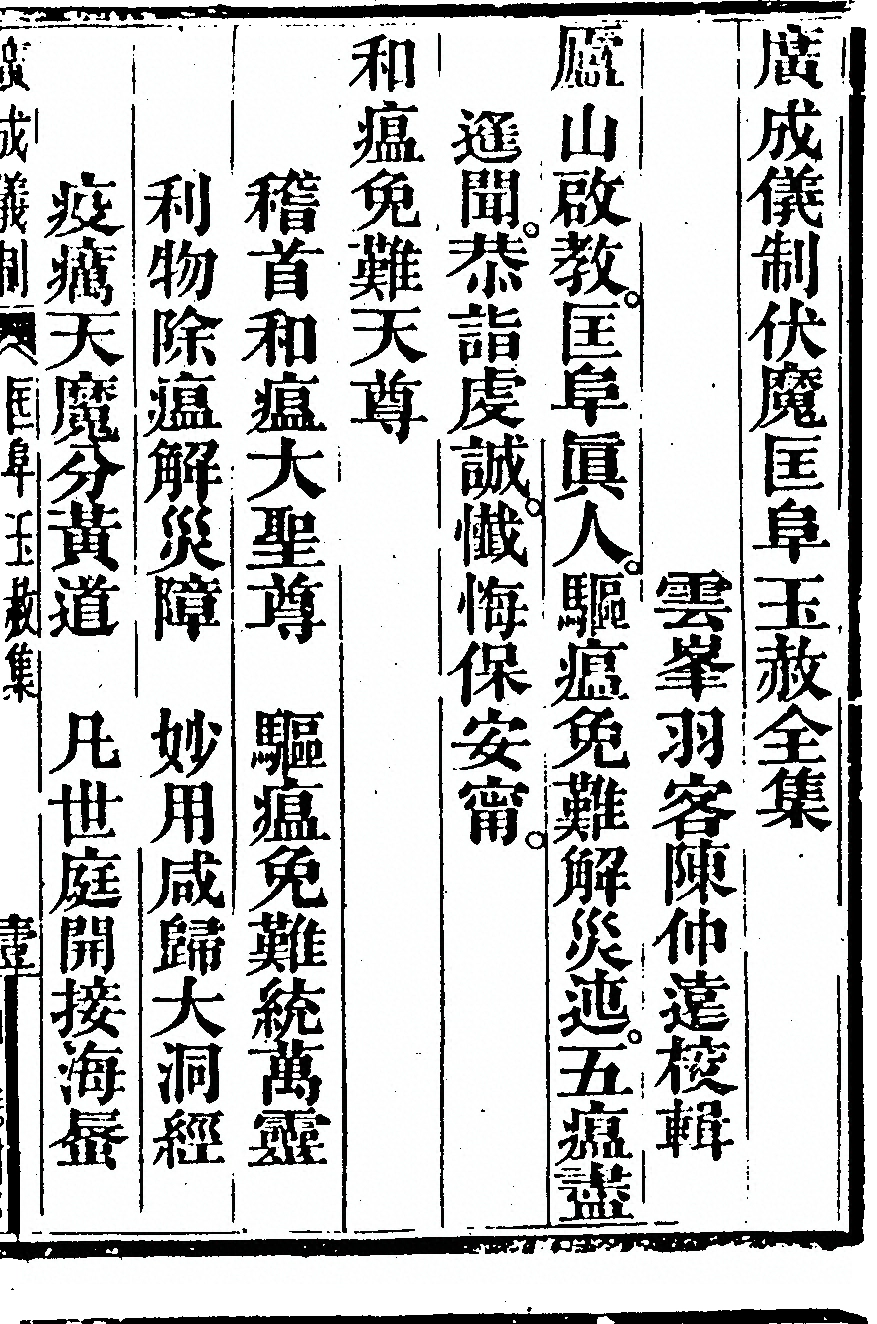 廣成儀制伏魔匡阜玉赦全集
雲峯羽客陳仲遠校輯
廬山啟教。匡阜眞人。驅瘟免難解災迍。五瘟盡
遥聞。恭詣虔誠。懺悔保安甯。
和瘟免難天尊
稽首和瘟大聖尊　驅瘟免難統萬靈
利物除瘟解災障　妙用咸歸大洞經
疫癘天魔分黃道　凡世庭開接海蜃
廣成儀制 匡阜玉赦集